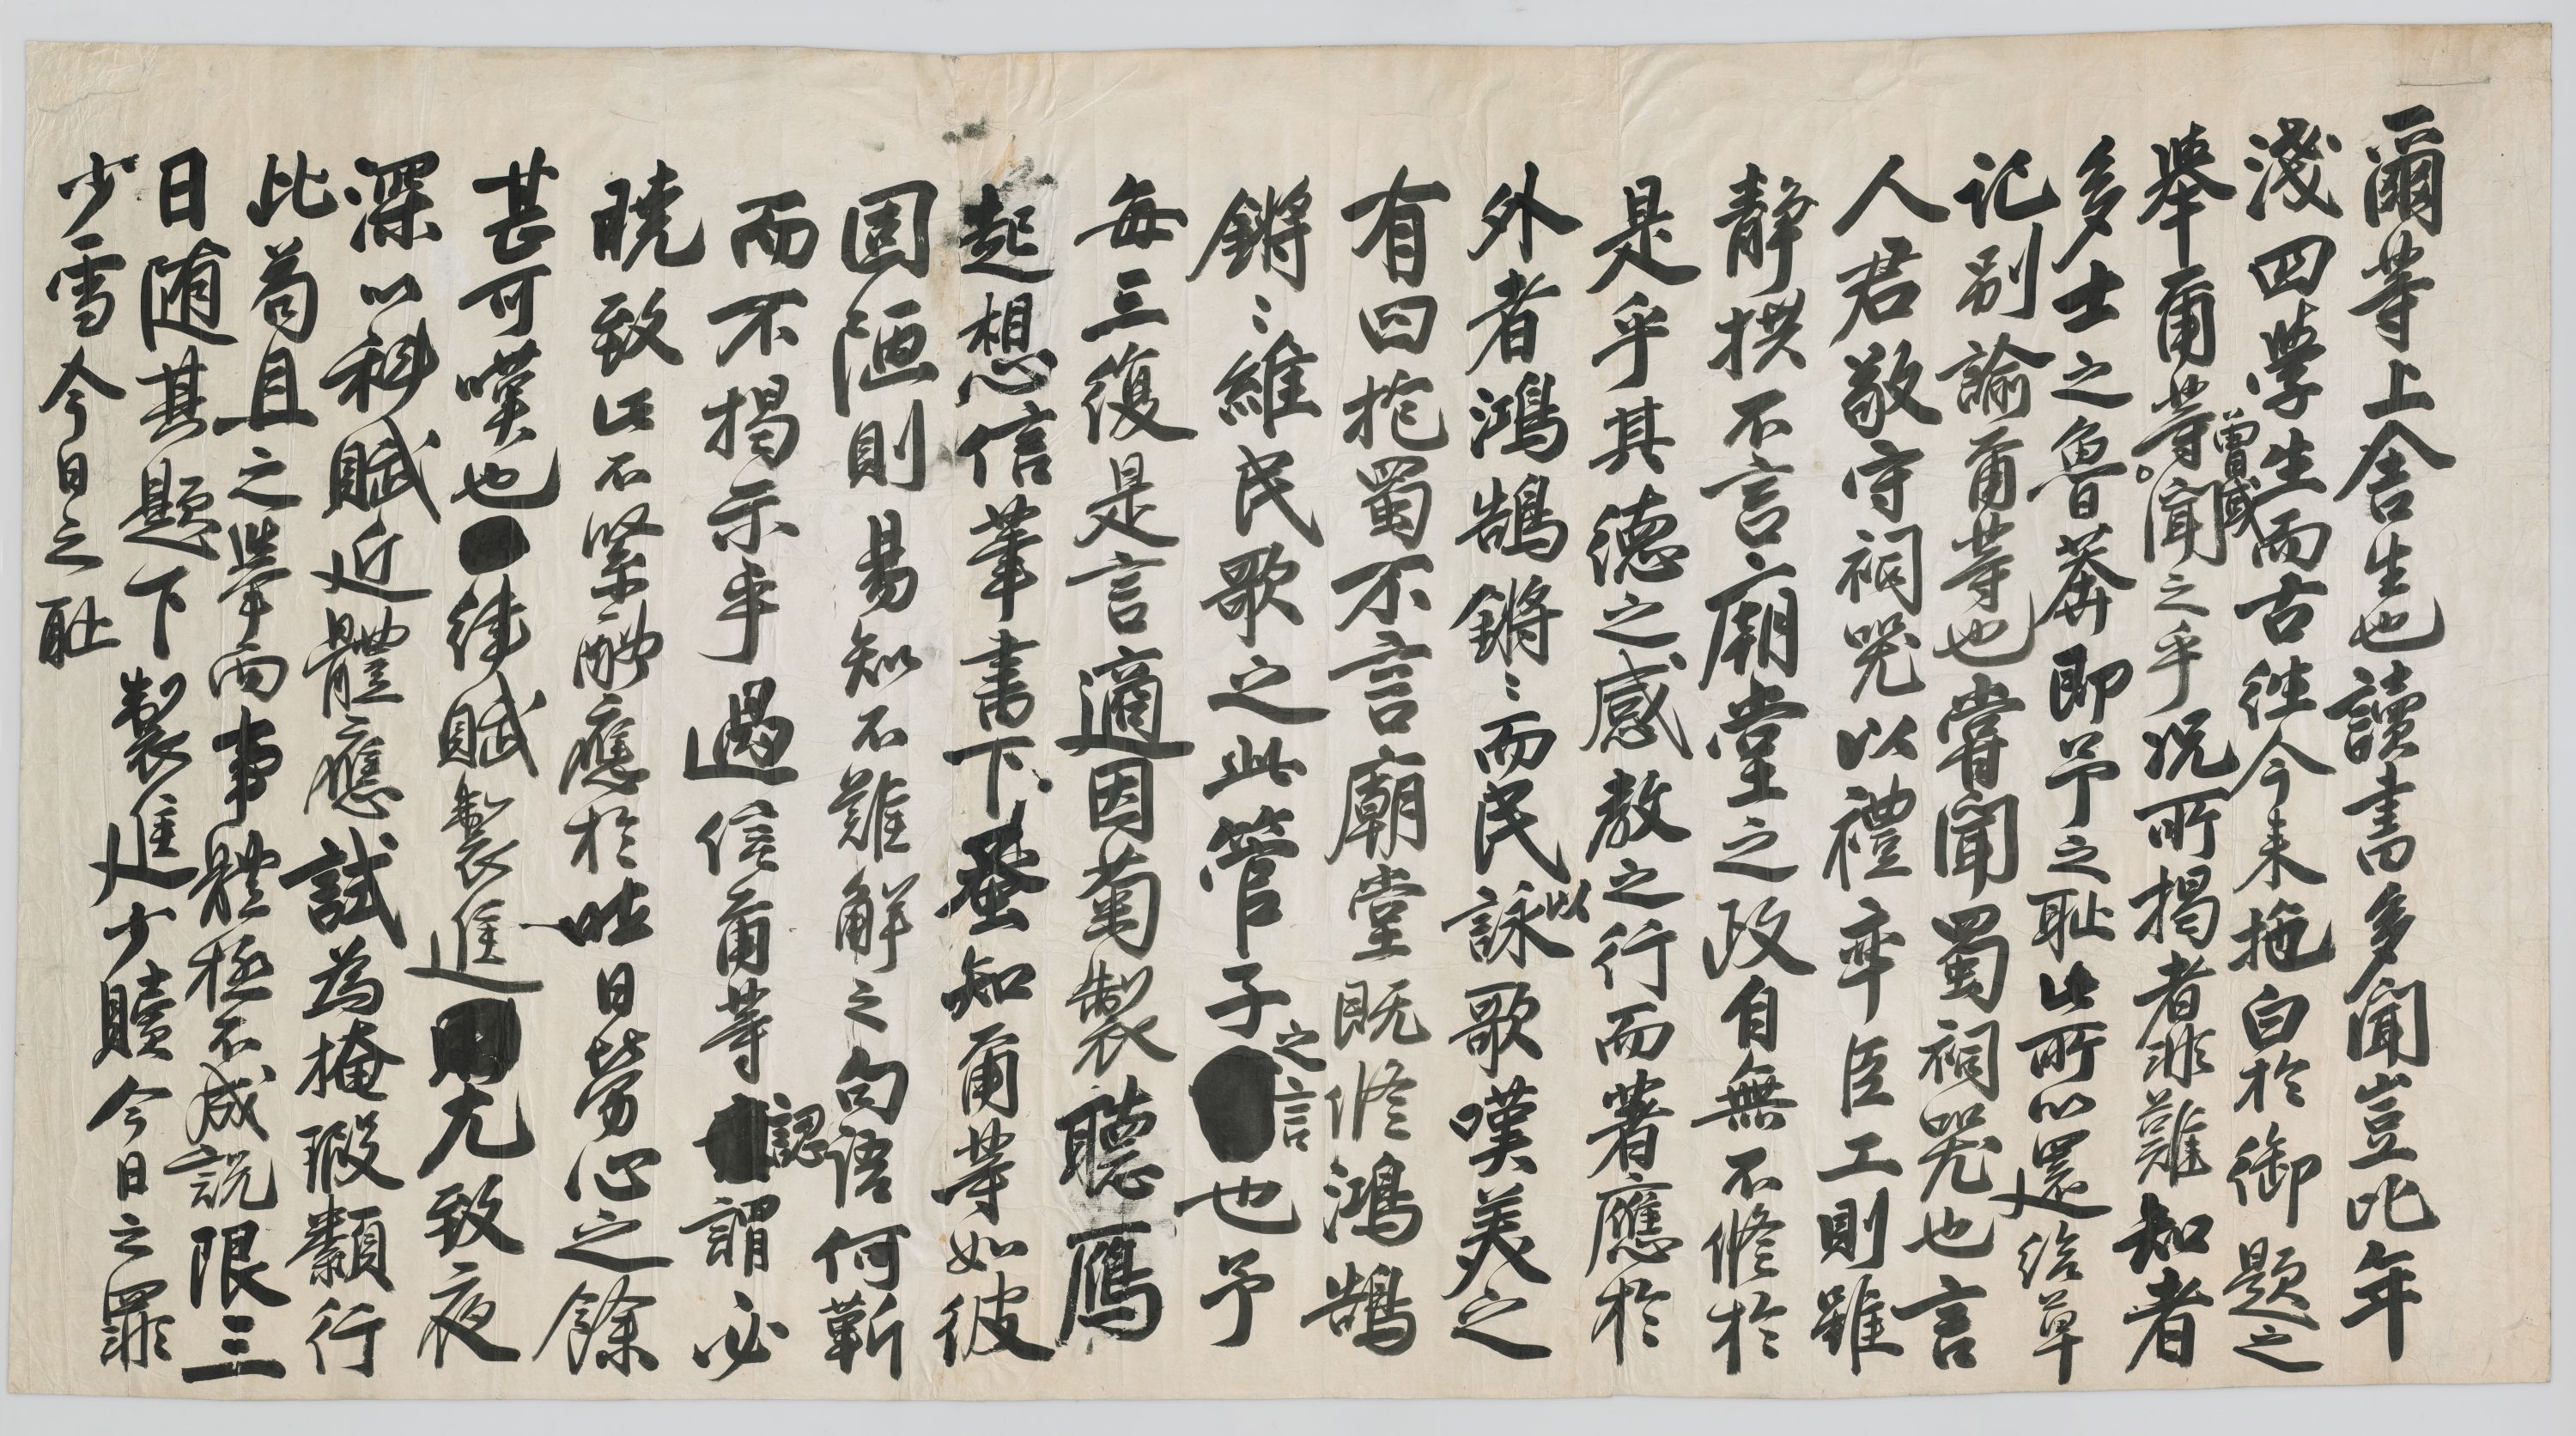 爾等上舍生也讀書多聞豈比年
淺四學生而古往今来拖白於御題之
擧爾等曾或聞之乎況所揭者非難知者
多士之魯莽即予之耻此所以還給草
記別諭爾等也嘗聞蜀祠器也言
人君敬守祠器以禮率臣工則雖
靜拱不言廟堂之政自無不修於
是乎其德之感敎之行而著應於
外者鴻鵠鏘〻而民以詠歌嘆美之
有曰抱蜀不言廟堂既修鴻鵠
鏘〻維民歌之此管子之言也予
每三復是言適因菊製聽鴈
起想信筆書下蚤知爾等如彼
固陋則易知不難解之句語何靳
而不揭示乎過信爾等認謂必
曉致此不緊酬應於昨日勞心之餘
甚可嘆也徒賦製進尤致夜
深以科賦近體應試爲掩瑕纇行
此苟且之擧而事體極不成說限三
日随其題下製進少贖今日之罪
少雪今日之耻